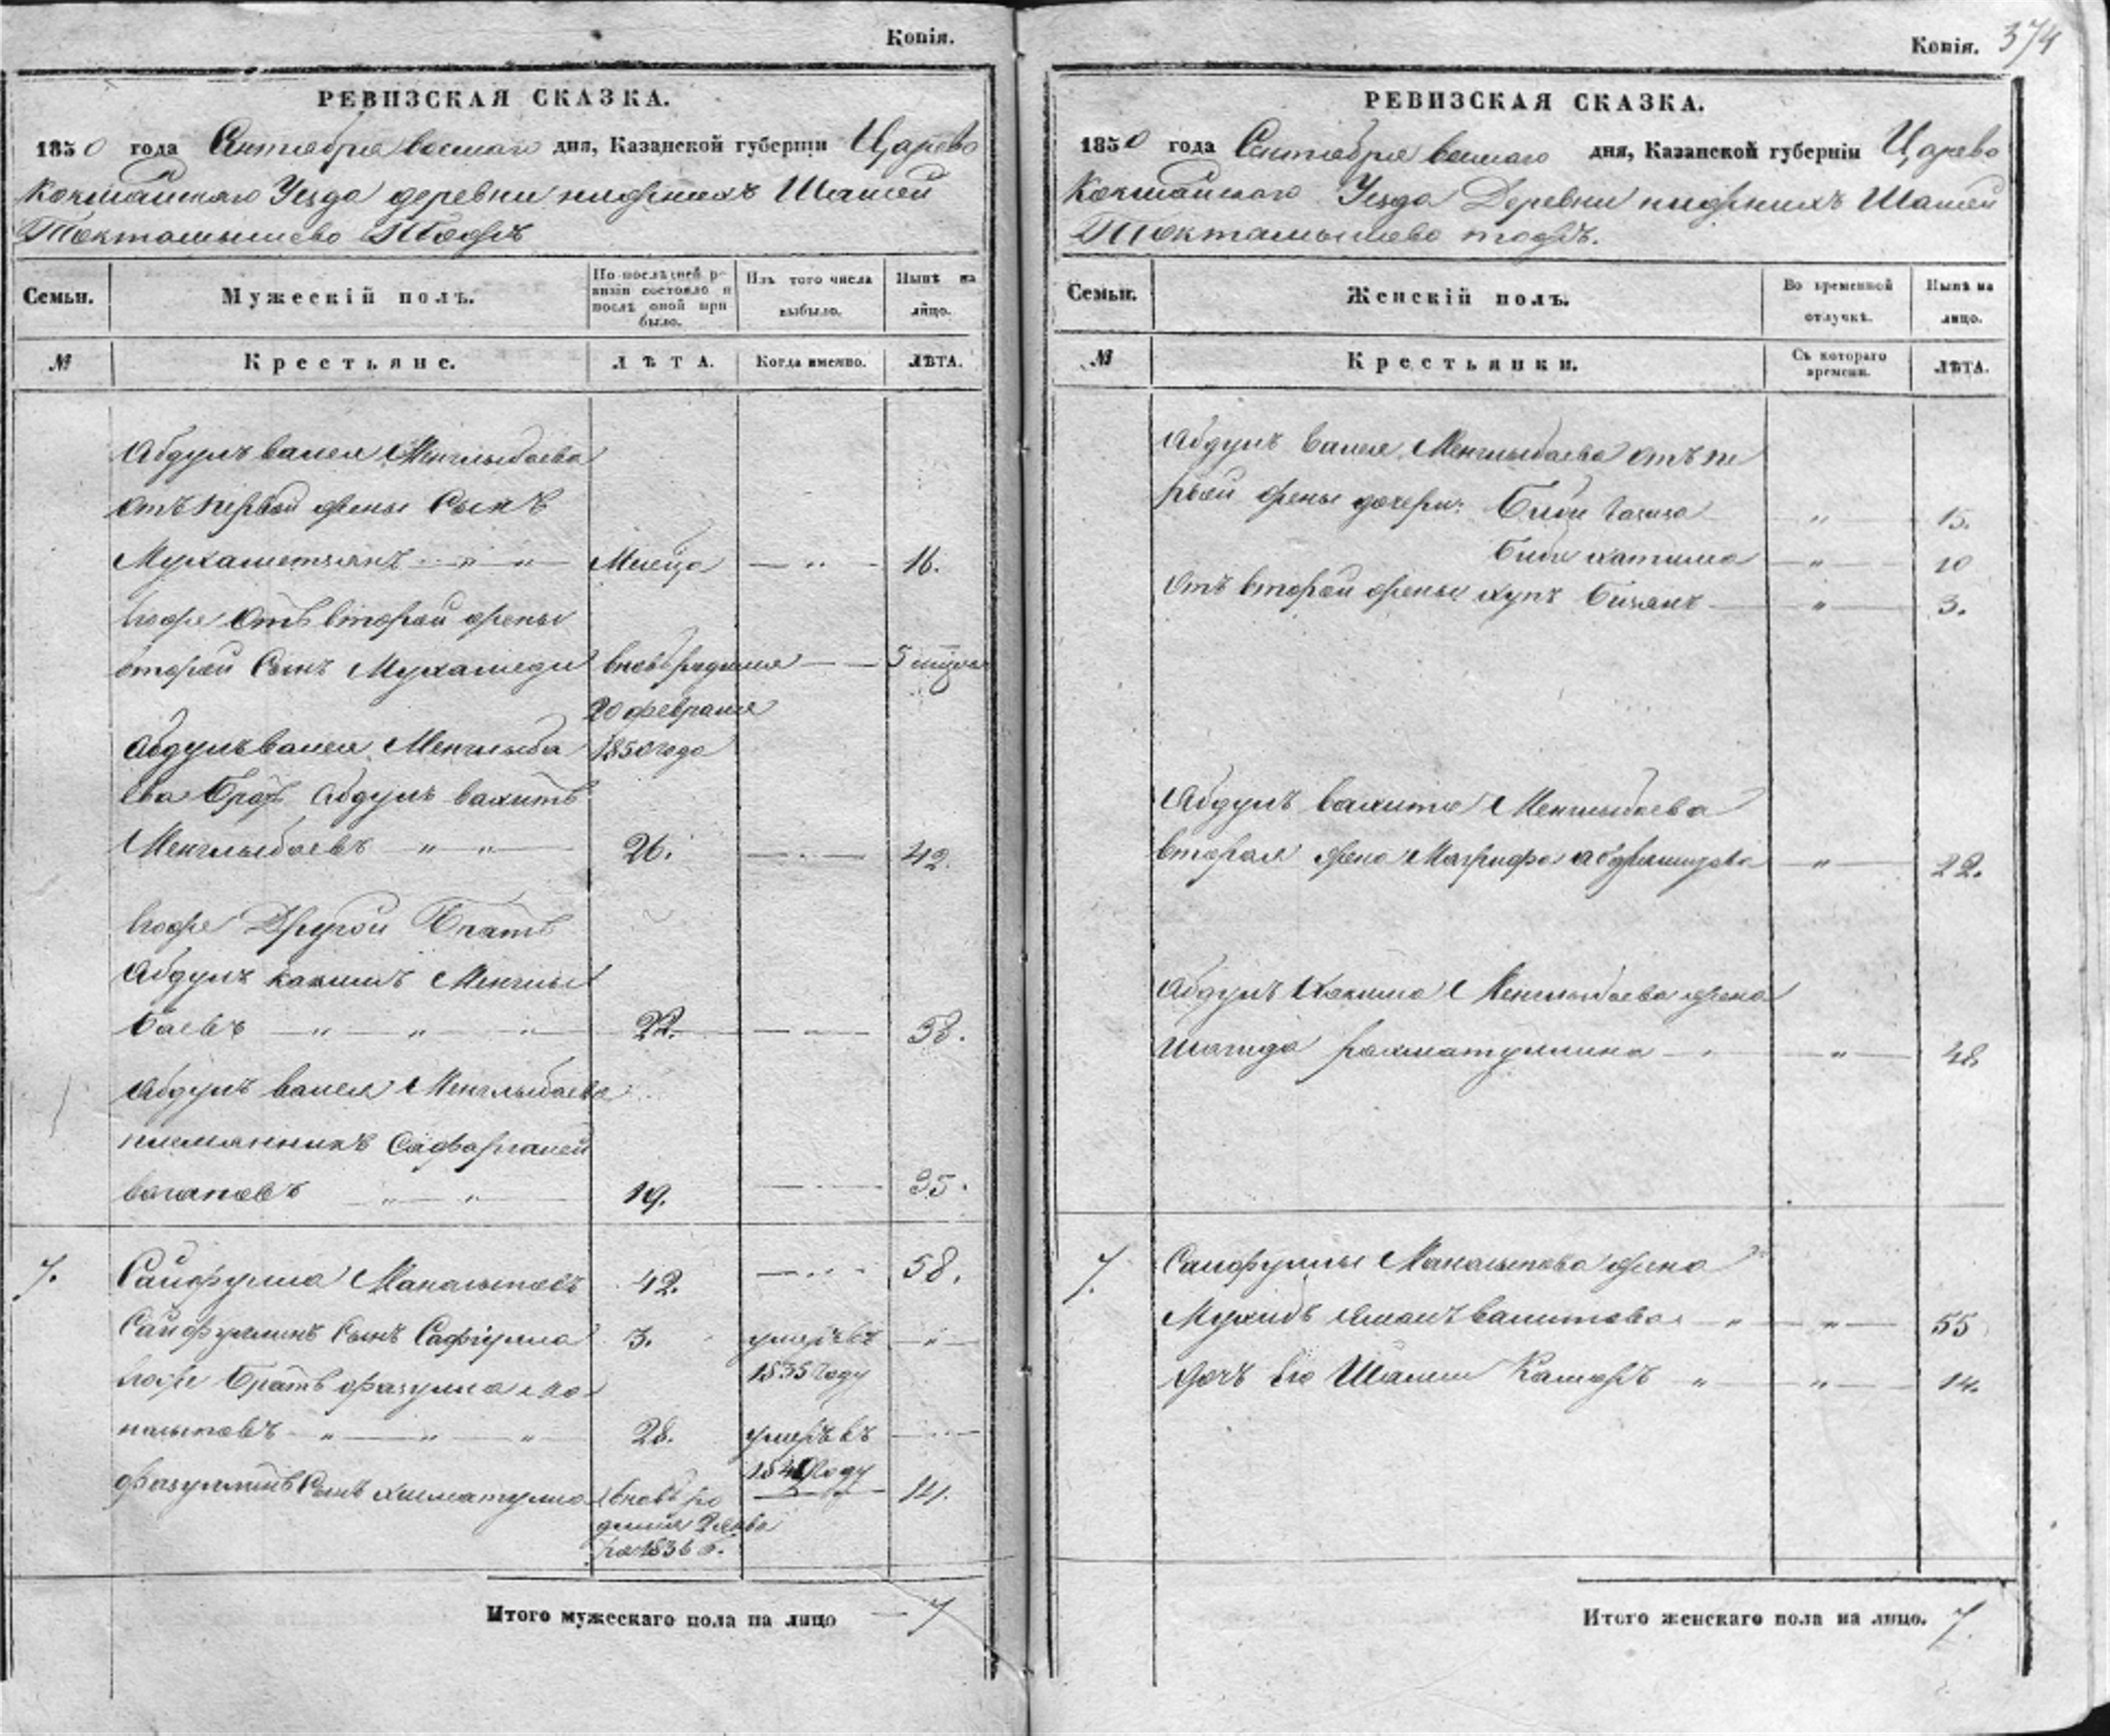 Копія.
РЕВИЗСКАЯ СКАЗКА.
1850 года Сентября восмаго дня, Казанской губерніи Царево
Кокшайскаго Уезда деревни нижнихъ Шашей
Токтамышево тожъ
Семьи.
Мужескій полъ.
По послѣдней ревизіи состояло и послѣ оной прибыло.
Изъ того числа выбыло.
Нынѣ на лицо.
№
Крестьяне.
ЛѢТА.
Когда именно.
ЛѢТА.
Абдулъ валея Менглыбаева
отъ первой жены Сынъ
Мухаметзянъ Мщца 16.
Егоже отъ второй жены
второй Сынъ Мухамеди вновьрожденъ 5 мцовъ
20 февраля
Абдулъ валея Менглыба 1850 года
ева братъ Абдулъ вахитъ
Менглыбаевъ " " 26. 42.
Егоже Другой братъ
Абдулъ хакимъ Менглы
баевъ " " " 22. 38.
Абдулъ валея Менглыбаева
племянникъ Сафаргалей
вагаповъ " " 19. 35.
7. Сайфулла Манасыповъ 42. 58.
Сайфуллинъ Сынъ Сафиулла 3. умеръ въ "
1835 году
Егоже братъ Фазулла Ма
насыповъ " " " 28. умеръ въ
1849 году
Фазуллинъ Сынъ Хисматулла вновь ро 14.
денъ 2 янва
ря 1836 г.
Итого мужескаго пола на лицо 7
Копія. 374
РЕВИЗСКАЯ СКАЗКА.
1850 года Сентября восмаго дня, Казанской губерніи Царево
Кокшайскаго Уезда Деревни нижнихъ Шашей
Токтамышево тожъ.
Семьи.
Женскій полъ.
Во временной отлучкѣ.
Нынѣ на лицо.
№
Крестьянки.
Съ котораго времени.
ЛѢТА.
Абдулъ валея Менглыбаева отъ пе
рвой жены дочери: Биби " 15.
Биби хатима " 10
Отъ второй жены Бизянъ " 3.
Абдулъ вахита Менглыбаева
вторая жена Магрифа " 22.
Абдулъ Хакима Менглыбаева жена
Шагида рахматуллина " 48
7. Сайфуллы Манасыпова жена
" " 55
Дочь его Шамси Камаръ " " 14.
Итого женскаго пола на лицо. 7.